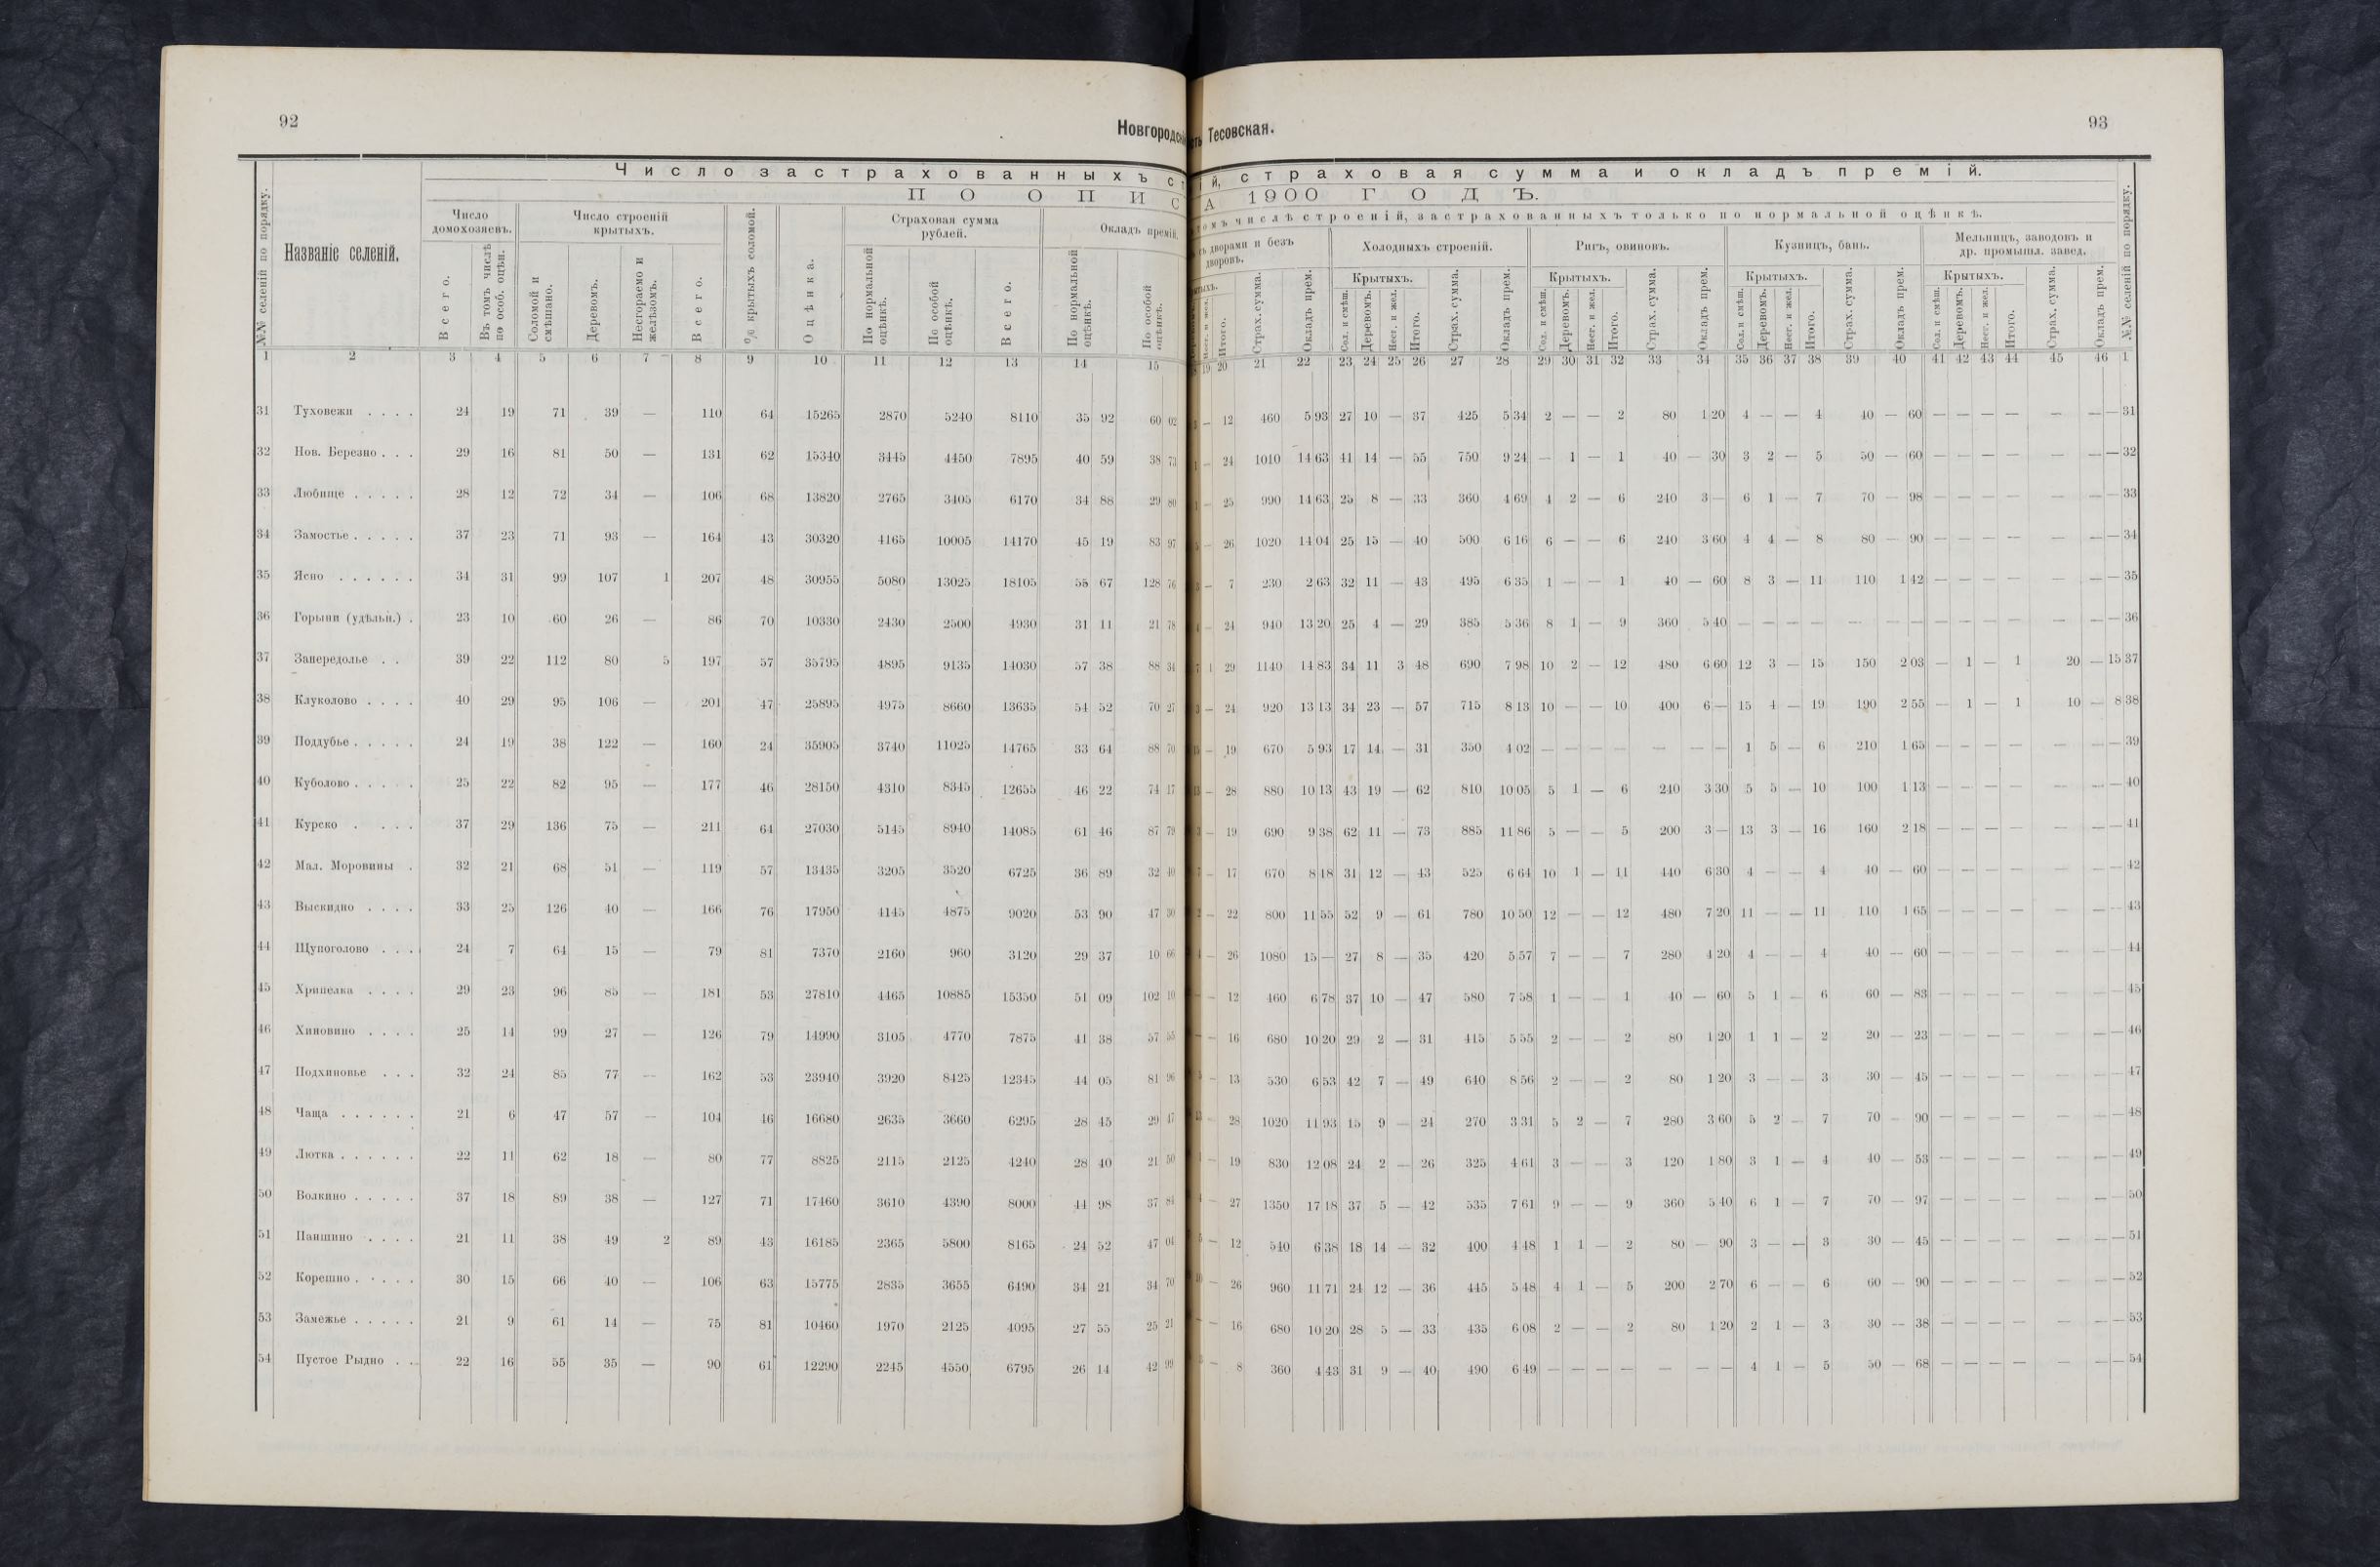 92
Новгородскі
Число застрахованныхъ ст
ПО ОПИС
№№ селеній по порядку.
Названіе селеній.
Число домохозяевъ.
Всего.
Въ томъ числѣ по особ. оцѣн.
Число строеній крытыхъ.
Соломой и смѣшано.
Деревомъ.
Несгораемо и желѣзомъ.
Всего.
% крытыхъ соломой.
Оцѣнка.
Страховая сумма рублей.
По нормальной оцѣнкѣ.
По особой оцѣнкѣ.
Всего.
Окладъ премій.
По нормальной оцѣнкѣ.
По особой оцѣнкѣ.
1 2 3 4 5 6 7 8 9 10 11 12 13 14 15
31 Туховежи . . . . 24 19 71 39 — 110 64 15265 2870 5240 8110 35 92 60 02
32 Нов. Березно . . . 29 16 81 50 — 131 62 15340 3445 4450 7895 40 59 38 73
33 Любище . . . . . 28 12 72 34 — 106 68 13820 2765 3405 6170 34 88 29 80
34 Замостье . . . . . 37 23 71 93 — 164 43 30320 4165 10005 14170 45 19 83 97
35 Ясно . . . . . . 34 31 99 107 1 207 48 30955 5080 13025 18105 55 67 128 76
36 Горыни (удѣльн.) . 23 10 60 26 — 86 70 10330 2430 2500 4930 31 11 21 78
37 Запередолье . . 39 22 112 80 5 197 57 35795 4895 9135 14030 57 38 88 34
38 Клуколово . . . . 40 29 95 106 — 201 47 25895 4975 8660 13635 54 52 70 27
39 Поддубье . . . . . 24 19 38 122 — 160 24 35905 3740 11025 14765 33 64 88 70
40 Куболово . . . . . 25 22 82 95 — 177 46 28150 4310 8345 12655 46 22 74 17
41 Курско . . . . 37 29 136 75 — 211 64 27030 5145 8940 14085 61 46 87 79
42 Мал. Моровины . 32 21 68 51 — 119 57 13435 3205 3520 6725 36 89 32 40
43 Выскидно . . . . 33 25 126 40 — 166 76 17950 4145 4875 9020 53 90 47 30
44 Щупоголово . . . 24 7 64 15 — 79 81 7370 2160 960 3120 29 37 10 66
45 Хрипелка . . . . 29 23 96 85 — 181 53 27810 4465 10885 15350 51 09 102 10
46 Хиновино . . . . 25 14 99 27 — 126 79 14990 3105 4770 7875 41 38 57 55
47 Подхиновье . . . 32 24 85 77 — 162 53 23940 3920 8425 12345 44 05 81 96
48 Чаща . . . . . . 21 6 47 57 — 104 46 16680 2635 3660 6295 28 45 29 47
49 Лютка . . . . . . 22 11 62 18 — 80 77 8825 2115 2125 4240 28 40 21 50
50 Волкино . . . . . 37 18 89 38 — 127 71 17460 3610 4390 8000 44 98 37 84
51 Паншино . . . . 21 11 38 49 2 89 43 16185 2365 5800 8165 24 52 47 04
52 Корешно . . . . . 30 15 66 40 — 106 63 15775 2835 3655 6490 34 21 34 70
53 Замежье . . . . . 21 9 61 14 — 75 81 10460 1970 2125 4095 27 55 25 21
54 Пустое Рыдно . . 22 16 55 35 — 90 61 12290 2245 4550 6795 26 14 42 99
93
ть Тесовская.
ій, страховая сумма и окладъ премій.
А 1900 ГОДЪ.
томъ числѣ строеній, застрахованныхъ только по нормальной оцѣнкѣ.
съ дворами и безъ дворовъ.
Нест. и жел.
Итого.
Страх. сумма.
Окладъ прем.
Холодныхъ строеній.
Крытыхъ.
Сол. и смѣш.
Деревомъ.
Нест. и жел.
Итого.
Страх. сумма.
Окладъ прем.
Ригъ, овиновъ.
Крытыхъ.
Сол. и смѣш.
Деревомъ.
Нест. и жел.
Итого.
Страх. сумма.
Окладъ прем.
Кузницъ, бань.
Крытыхъ.
Сол. и смѣш.
Деревомъ.
Нест. и жел.
Итого.
Страх. сумма.
Окладъ прем.
Мельницъ, заводовъ и др. промышл. завед.
Крытыхъ.
Сол. и смѣш.
Деревомъ.
Нест. и жел.
Итого.
Страх. сумма.
Окладъ прем.
№№ селеній по порядку.
19 20 21 22 23 24 25 26 27 28 29 30 31 32 33 34 35 36 37 38 39 40 41 42 43 44 45 46 1
— 12 460 5 93 27 10 — 37 425 5 34 2 — — 2 80 1 20 4 — — 4 40 — 60 — — — — — — — 31
— 24 1010 14 63 41 14 — 55 750 9 24 — 1 — 1 40 — 30 3 2 — 5 50 — 60 — — — — — — — 32
— 25 990 14 63 25 8 — 33 360 4 69 4 2 — 6 240 3 — 6 1 — 7 70 — 98 — — — — — — — 33
— 26 1020 14 04 25 15 — 40 500 6 16 6 — — 6 240 3 60 4 4 — 8 80 — 90 — — — — — — — 34
— 7 230 2 63 32 11 — 43 495 6 35 1 — — 1 40 — 60 8 3 — 11 110 1 42 — — — — — — — 35
— 24 940 13 20 25 4 — 29 385 5 36 8 1 — 9 360 5 40 — — — — — — — — — — — — — — 36
1 29 1140 14 83 34 11 3 48 690 7 98 10 2 — 12 480 6 60 12 3 — 15 150 2 03 — 1 — 1 20 — 15 37
— 24 920 13 13 34 23 — 57 715 8 13 10 — — 10 400 6 — 15 4 — 19 190 2 55 — 1 — 1 10 — 8 38
— 19 670 5 93 17 14 — 31 350 4 02 — — — — — — — 1 5 — 6 210 1 65 — — — — — — — 39
— 28 880 10 13 43 19 — 62 810 10 05 5 1 — 6 240 3 30 5 5 — 10 100 1 13 — — — — — — — 40
— 19 690 9 38 62 11 — 73 885 11 86 5 — — 5 200 3 — 13 3 — 16 160 2 18 — — — — — — — 41
— 17 670 8 48 31 12 — 43 525 6 64 10 1 — 11 440 6 30 4 — — 4 40 — 60 — — — — — — — 42
— 22 800 11 55 52 9 — 61 780 10 50 12 — — 12 480 7 20 11 — — 11 110 1 65 — — — — — — — 43
— 26 1080 15 — 27 8 — 35 420 5 57 7 — — 7 280 4 20 4 — — 4 40 — 60 — — — — — — — 44
— 12 460 6 78 37 10 — 47 580 7 58 1 — — 1 40 — 60 5 1 — 6 60 — 83 — — — — — — — 45
— 16 680 10 20 29 2 — 31 415 5 55 2 — — 2 80 1 20 1 1 — 2 20 — 23 — — — — — — — 46
— 13 530 6 53 42 7 — 49 640 8 56 2 — — 2 80 1 20 3 — — 3 30 — 45 — — — — — — — 47
— 28 1020 11 93 15 9 — 24 270 3 31 5 2 — 7 280 3 60 5 2 — 7 70 — 90 — — — — — — — 48
— 19 830 12 08 24 2 — 26 325 4 61 3 — — 3 120 1 80 3 1 — 4 40 — 53 — — — — — — — 49
— 27 1350 17 18 37 5 — 42 535 7 61 9 — — 9 360 5 40 6 1 — 7 70 — 97 — — — — — — — 50
— 12 540 6 38 18 14 — 32 400 4 48 1 1 — 2 80 — 90 3 — — 3 30 — 45 — — — — — — — 51
— 26 960 11 71 24 12 — 36 445 5 48 4 1 — 5 200 2 70 6 — — 6 60 — 90 — — — — — — — 52
— 16 680 10 20 28 5 — 33 435 6 08 2 — — 2 80 1 20 2 1 — 3 30 — 38 — — — — — — — 53
— 8 360 4 43 31 9 — 40 490 6 49 — — — — — — — 4 1 — 5 50 — 68 — — — — — — — 54